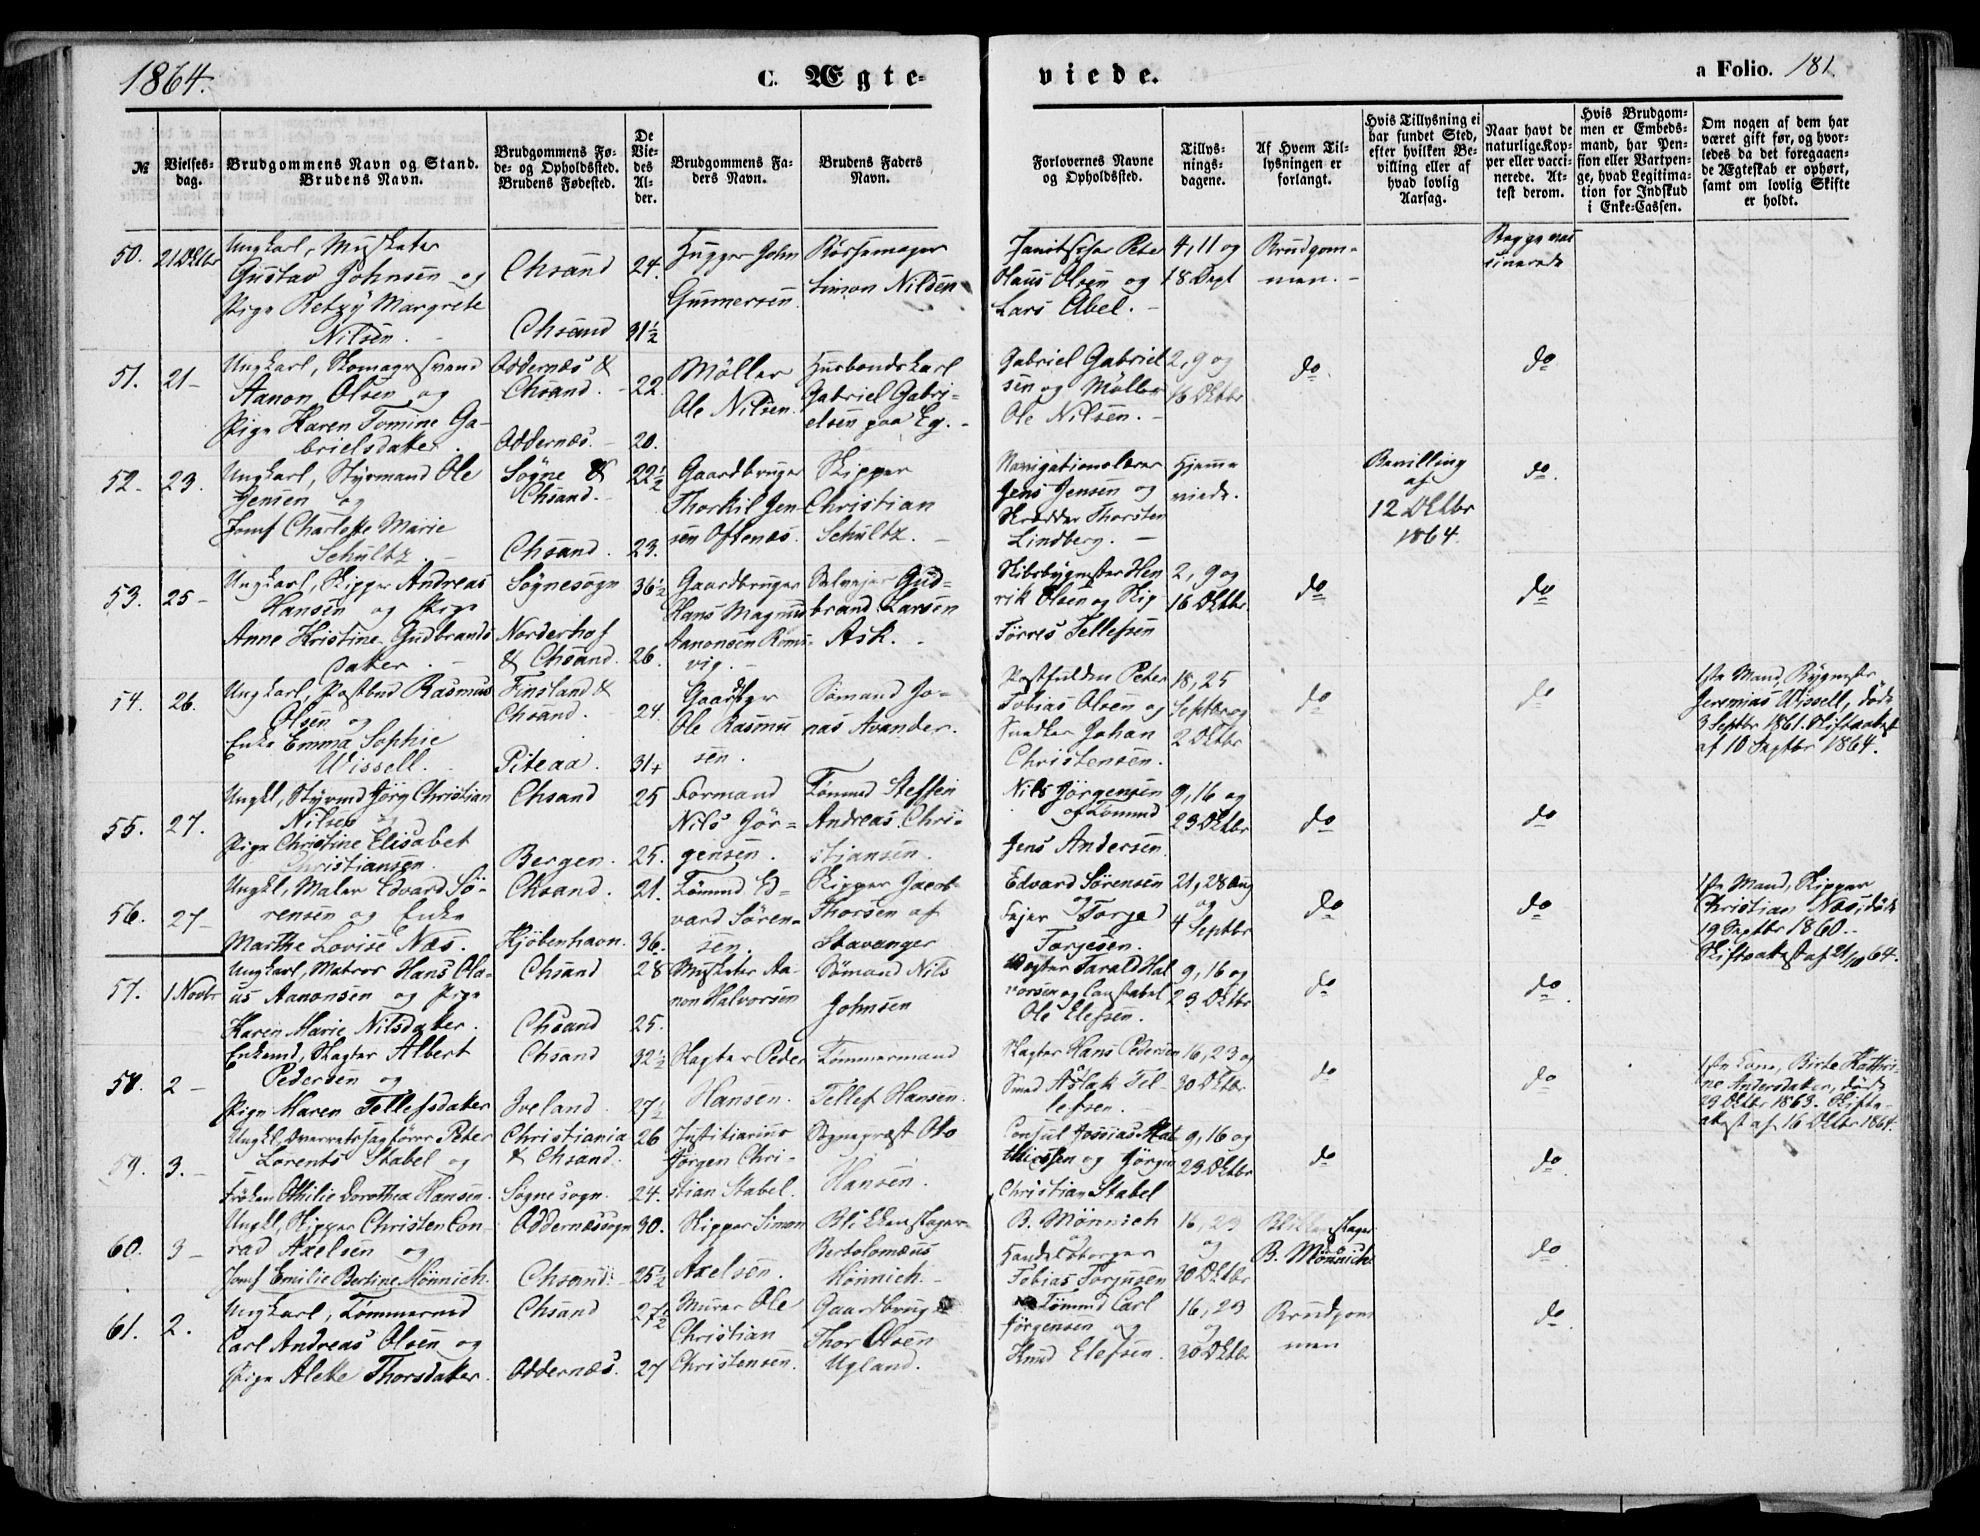 1864.
C. Ægte-
viede.
a Folio. 181.
№
Vielses-
dag.
Brudgommens Navn og Stand.
Brudens Navn.
Brudgommens Fø-
de- og Opholdssted.
Brudens Fødested.
De
Vie-
des
Al-
der.
Brudgommens Fa-
ders Navn.
Brudens Faders
Navn.
Forlovernes Navne
og Opholdssted.
Tillys-
nings-
dagene.
Af Hvem Til-
lysningen er
forlangt.
Hvis Tillysning ei
har fundet Sted,
efter hvilken Be-
villing eller af
hvad lovlig
Aarsag.
Naar havt de
naturlige Kop-
per eller vacci-
nerede. At-
test derom.
Hvis Brudgom-
men er Embeds-
mand, har Pen-
sion eller Vartpen-
ge, hvad Legitima-
tion for Indskud
i Enke-Cassen.
Om nogen af dem har
været gift før, og hvor-
ledes da det foregaaen-
de Ægteskab er ophørt,
samt om lovlig Skifte
er holdt.
50. 21 Oktbr
Ungkarl, Musketer
Gustav Johnsen og
Pige Betzy Margrete
Nilsen.
Chsand
Chsand
24.
31½
Hugger John
Gunnersen.
Børstemager
Simon Nilsen
Peter
Olaus Olsen og
Lars Abel.
4, 11 og
18 Sept
Brudgom-
men.
Begge vac-
cinerede
51. 21
Ungkarl, Skomagersvend
Aanon Olsen og
Pige Karen Tomine Ga-
brielsdatter.
Oddernæs &
Chsand.
Oddernæs.
22.
20.
Møller
Ole Nilsen.
Husbondskarl
Gabriel Gabri-
elsen paa Eg.
Gabriel Gabriel
sen og Møller
Ole Nilsen.
2, 9 og
16 Oktbr
do
do
52. 23.
Ungkarl, Styrmand Ole
Jensen og
Jomf Charlotte Marie
Schultz.
Søgne &
Chsand.
Chsand.
22½
23.
Gaardbruger
Thorkil Jen-
sen Oftenæs.
Skipper
Christian
Schultz.
Navigationslærer
Jens Jensen og
Skrædder Thorsten
Lindberg.
Hjemme
viede.
Bevilling
af
12 Oktbr
1864.
do.
53. 25
Ungkarl, Skipper Andreas
Hansen og Pige
Anne Kristine Gudbrands
datter.
Søgnesogn
Norderhof
& Chsand.
36½
26.
Gaardbruger
Hans Magnus
Aanonsen Roms-
vig.
Selveier Gud-
brand Larsen
Ask.
Skibsbygmester Hen
rik Olsen og Skip
Tørres Tellefsen
2, 9 og
16 Oktbr.
do
do
54. 26.
Ungkarl, Postbud Rasmus
Olsen og
Enke Emma Sophie
Wissell.
Finsland &
Chsand.
Piteaa.
24.
31
Gaardbgr
Ole Rasmus
sen.
Sømand Jo-
nas Avander.
Peter
Tobias Olsen og
Snedker Johan
Christensen.
18, 25
Septbr og
2 Oktbr
do
do
1ste Mand, Bygmester
Jeremias Wissell, døde
3 Septbr 1861. Skifteattest
af 10 Septbr 1864.
55. 27.
Ungkl, Styrmd Jørg Christian
Nilsen
Pige Christine Elisabet
Christiansen.
Chsand
Bergen.
25
25.
Formand
Nils Jør-
gensen.
Tømmd Steffen
Andreas Chri-
stiansen.
Nils Jørgensen
og Tømmd
Jens Andersen
9, 16 og
23 Oktbr
do
do
56. 27
Ungkl, Maler Edvard Sø-
rensen og Enke
Marthe Lovise Næs.
Chsand.
Kjøbenhavn.
21.
36.
Tømmd Ed-
vard Søren-
sen.
Skipper Jacob
Thorsen af
Stavanger
Edvard Sørensen
og
Fejer Torje
Torjesen.
21, 28 Aug
og
4 Septbr
do
do
1ste Mand, Skipper
Christian Næs, døde
19 Septbr 1860.
Skifteattest af 21/10 64.
57. 1 Novbr
Ungkarl, Matros Hans Ola-
us Aanonsen og Pige
Karen Marie Nilsdatter.
Chsand
Chsand
28
25.
Musketer Aa-
non Halvorsen
Sømand Nils
Johnsen
Vægter Tarald Hal
vorsen og Constabel
Ole Elefsen.
9, 16 og
23 Oktbr
do
do.
58. 2
Enkemd, Slagter Albert
Pedersen og
Pige Maren Tellefsdatter
Chsand
Iveland.
32½
27½
Slagter Peder
Hansen.
Tømmermand
Tellef Hansen.
Slagter Hans Pedersen
Smed Aslak Tel-
lefsen.
16, 23 og
30 Oktbr
do
do
1ste Kone, Birte Kathri-
ne Andersdatter, døde
29 Oktbr 1863. Skifte-
attest af 16 Oktbr 1864.
59. 3.
Ungkl, Overretssagfører Peter
Lorents Stabel og
Frøken Othilie Dorothea Hansen.
Christiania
& Chsand.
Søgnesogn.
26
24.
Justitiarius
Jørgen Chri-
stian Stabel.
Sognepræst Oto
Hansen.
Consul Jossias Mat
thiessen og Jørgen
Christian Stabel
9, 16 og
23 Oktbr
do
do.
60. 3
Ungkl, Skipper Christen Con-
rad Axelsen og
Jomf Emilie Bertine Mønnich.
Oddernæssogn
Chsand.
30.
25½
Skipper Simon
Axelsen.
Blikkenslager
Bertolomæus
Mønnich.
B. Mønnich
og
Handelsborger
Tobias Torjusen
16, 23
og
30 Oktbr
Blikkenslager
B. Mønnich
do
61. 2.
Ungkarl, Tømmermd
Carl Andreas Olsen og
Pige Alette Thorsdatter.
Chsand
Oddernæs.
27½
27
Murer Ole
Christian
Christensen.
Gaardbruger
Thor Olsen
Ugland.
Tømmd Carl
Jørgensen og
Knud Elefsen.
16, 23
og
30 Oktbr
Brudgom
men
do